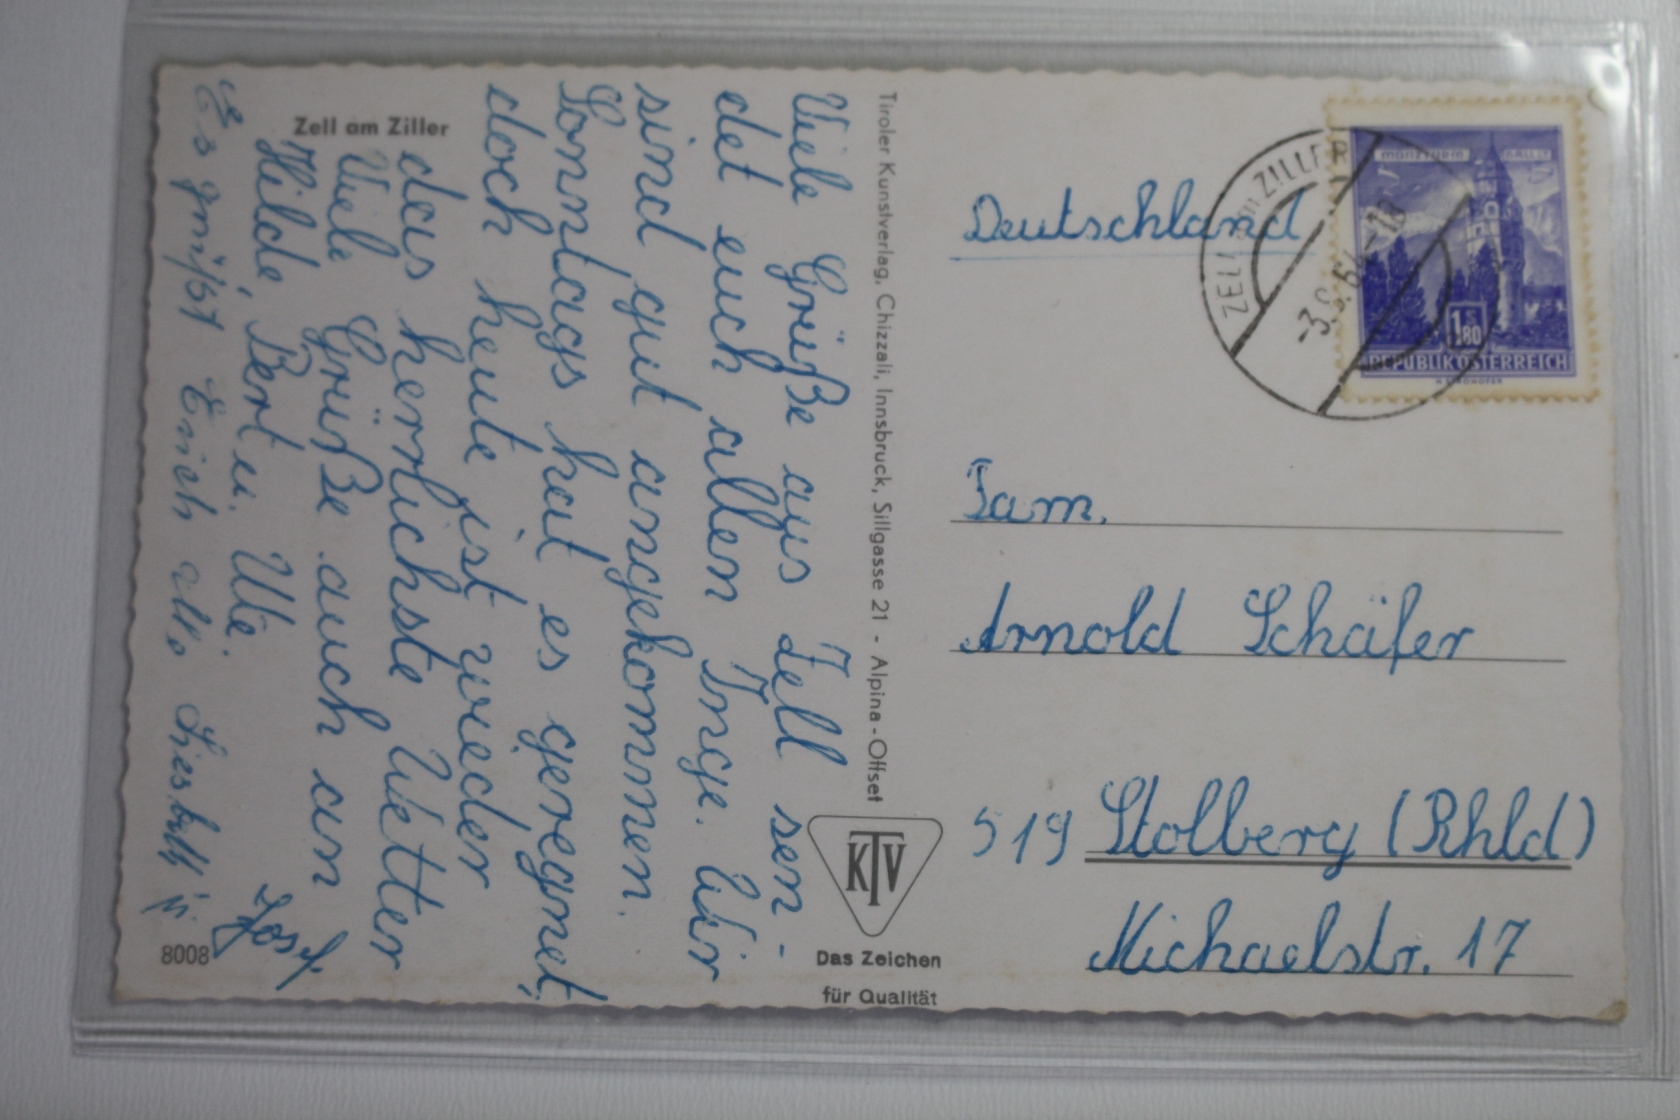 Zell am Ziller
Viele Grüße aus Zell sen-
det euch allen Inge. Wir
sind gut angekommen.
Sonntags hat es geregnet,
doch heute ist wieder
das herrlichste Wetter
Viele Grüße auch an
Hilde, Bert u. Ute.
Es grüßt Euch alle
Tiroler Kunstverlag, Chizzali, Innsbruck, Sillgasse 21 - Alpina-Offset
KTV
Das Zeichen
für Qualität
8008
Deutschland
ZELL am ZILLER
REPUBLIK ÖSTERREICH
Fam.
Arnold Schäfer
519 Stolberg (Rhld)
Michaelstr. 17